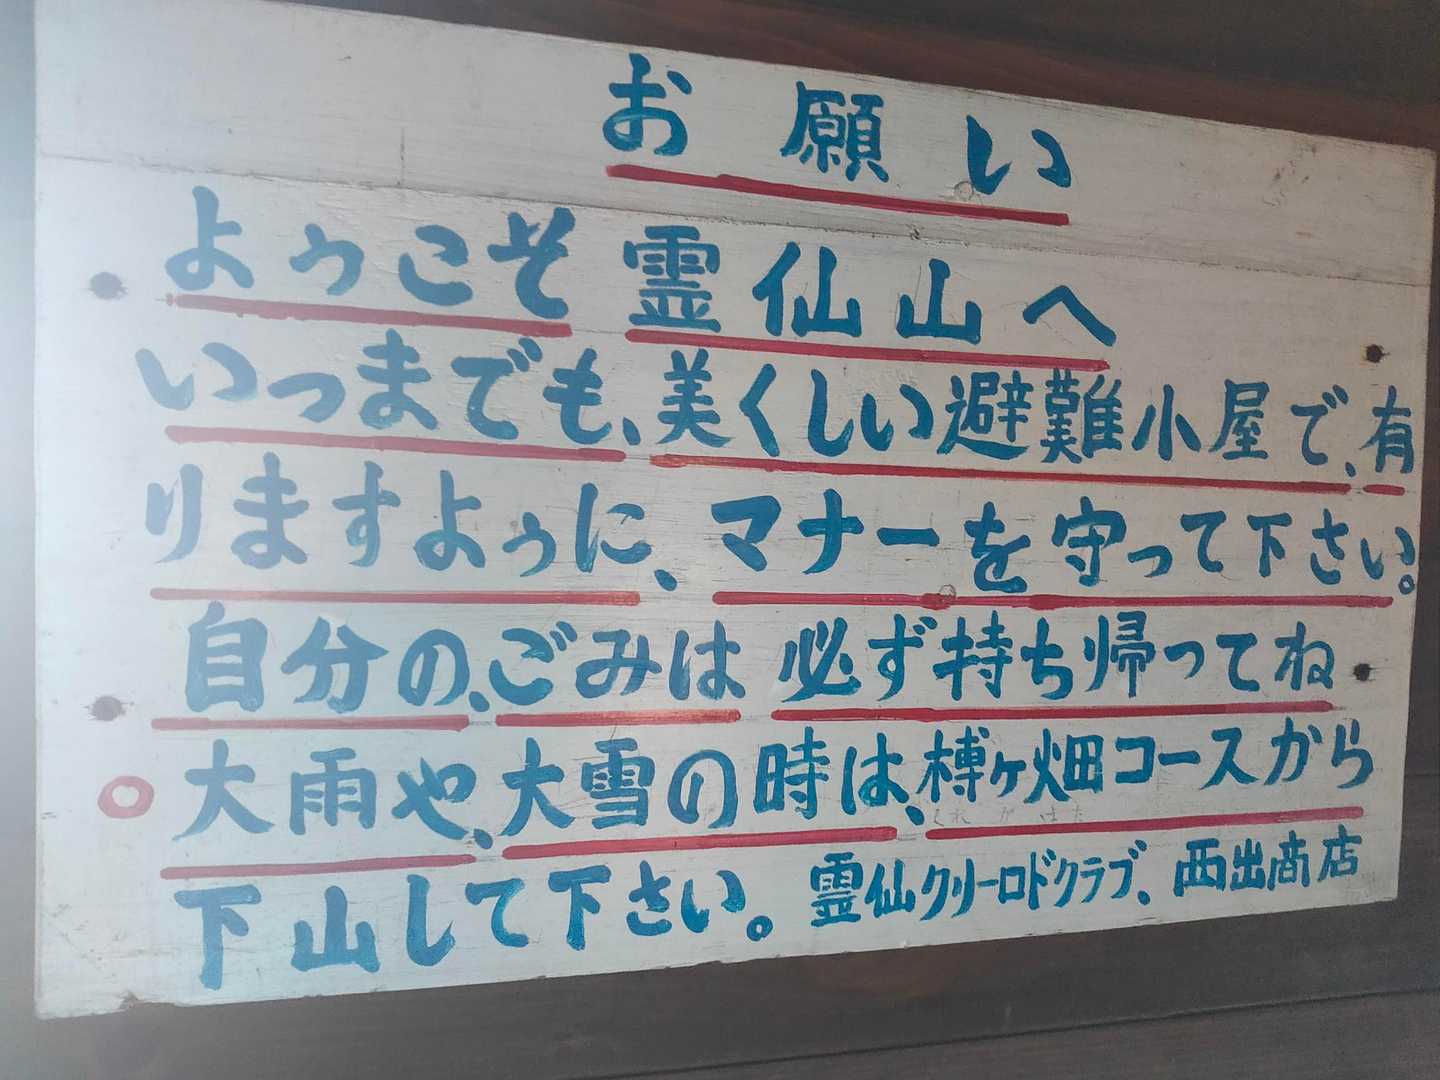 お願い
ようこそ霊仙山へ
いつまでも、美くしい避難小屋で、有
りますように、マナーを守って下さい。
自分の、ごみは 必ず持ち帰ってね
○大雨や、大雪の時は、榑ヶ畑コースから
くれ が はた
下山して下さい。霊仙クリーロドクラブ、西出商店